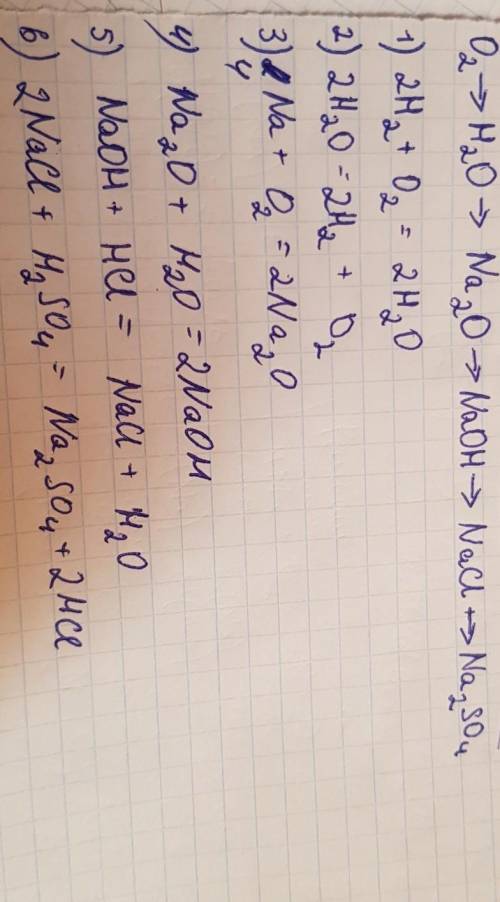 O₂ → H₂O → Na₂O → NaOH → NaCl → Na₂SO₄
1) 2H₂ + O₂ = 2H₂O
2) 2H₂O = 2H₂ + O₂
3) 4Na + O₂ = 2Na₂O
4) Na₂O + H₂O = 2NaOH
5) NaOH + HCl = NaCl + H₂O
6) 2NaCl + H₂SO₄ = Na₂SO₄ + 2HCl